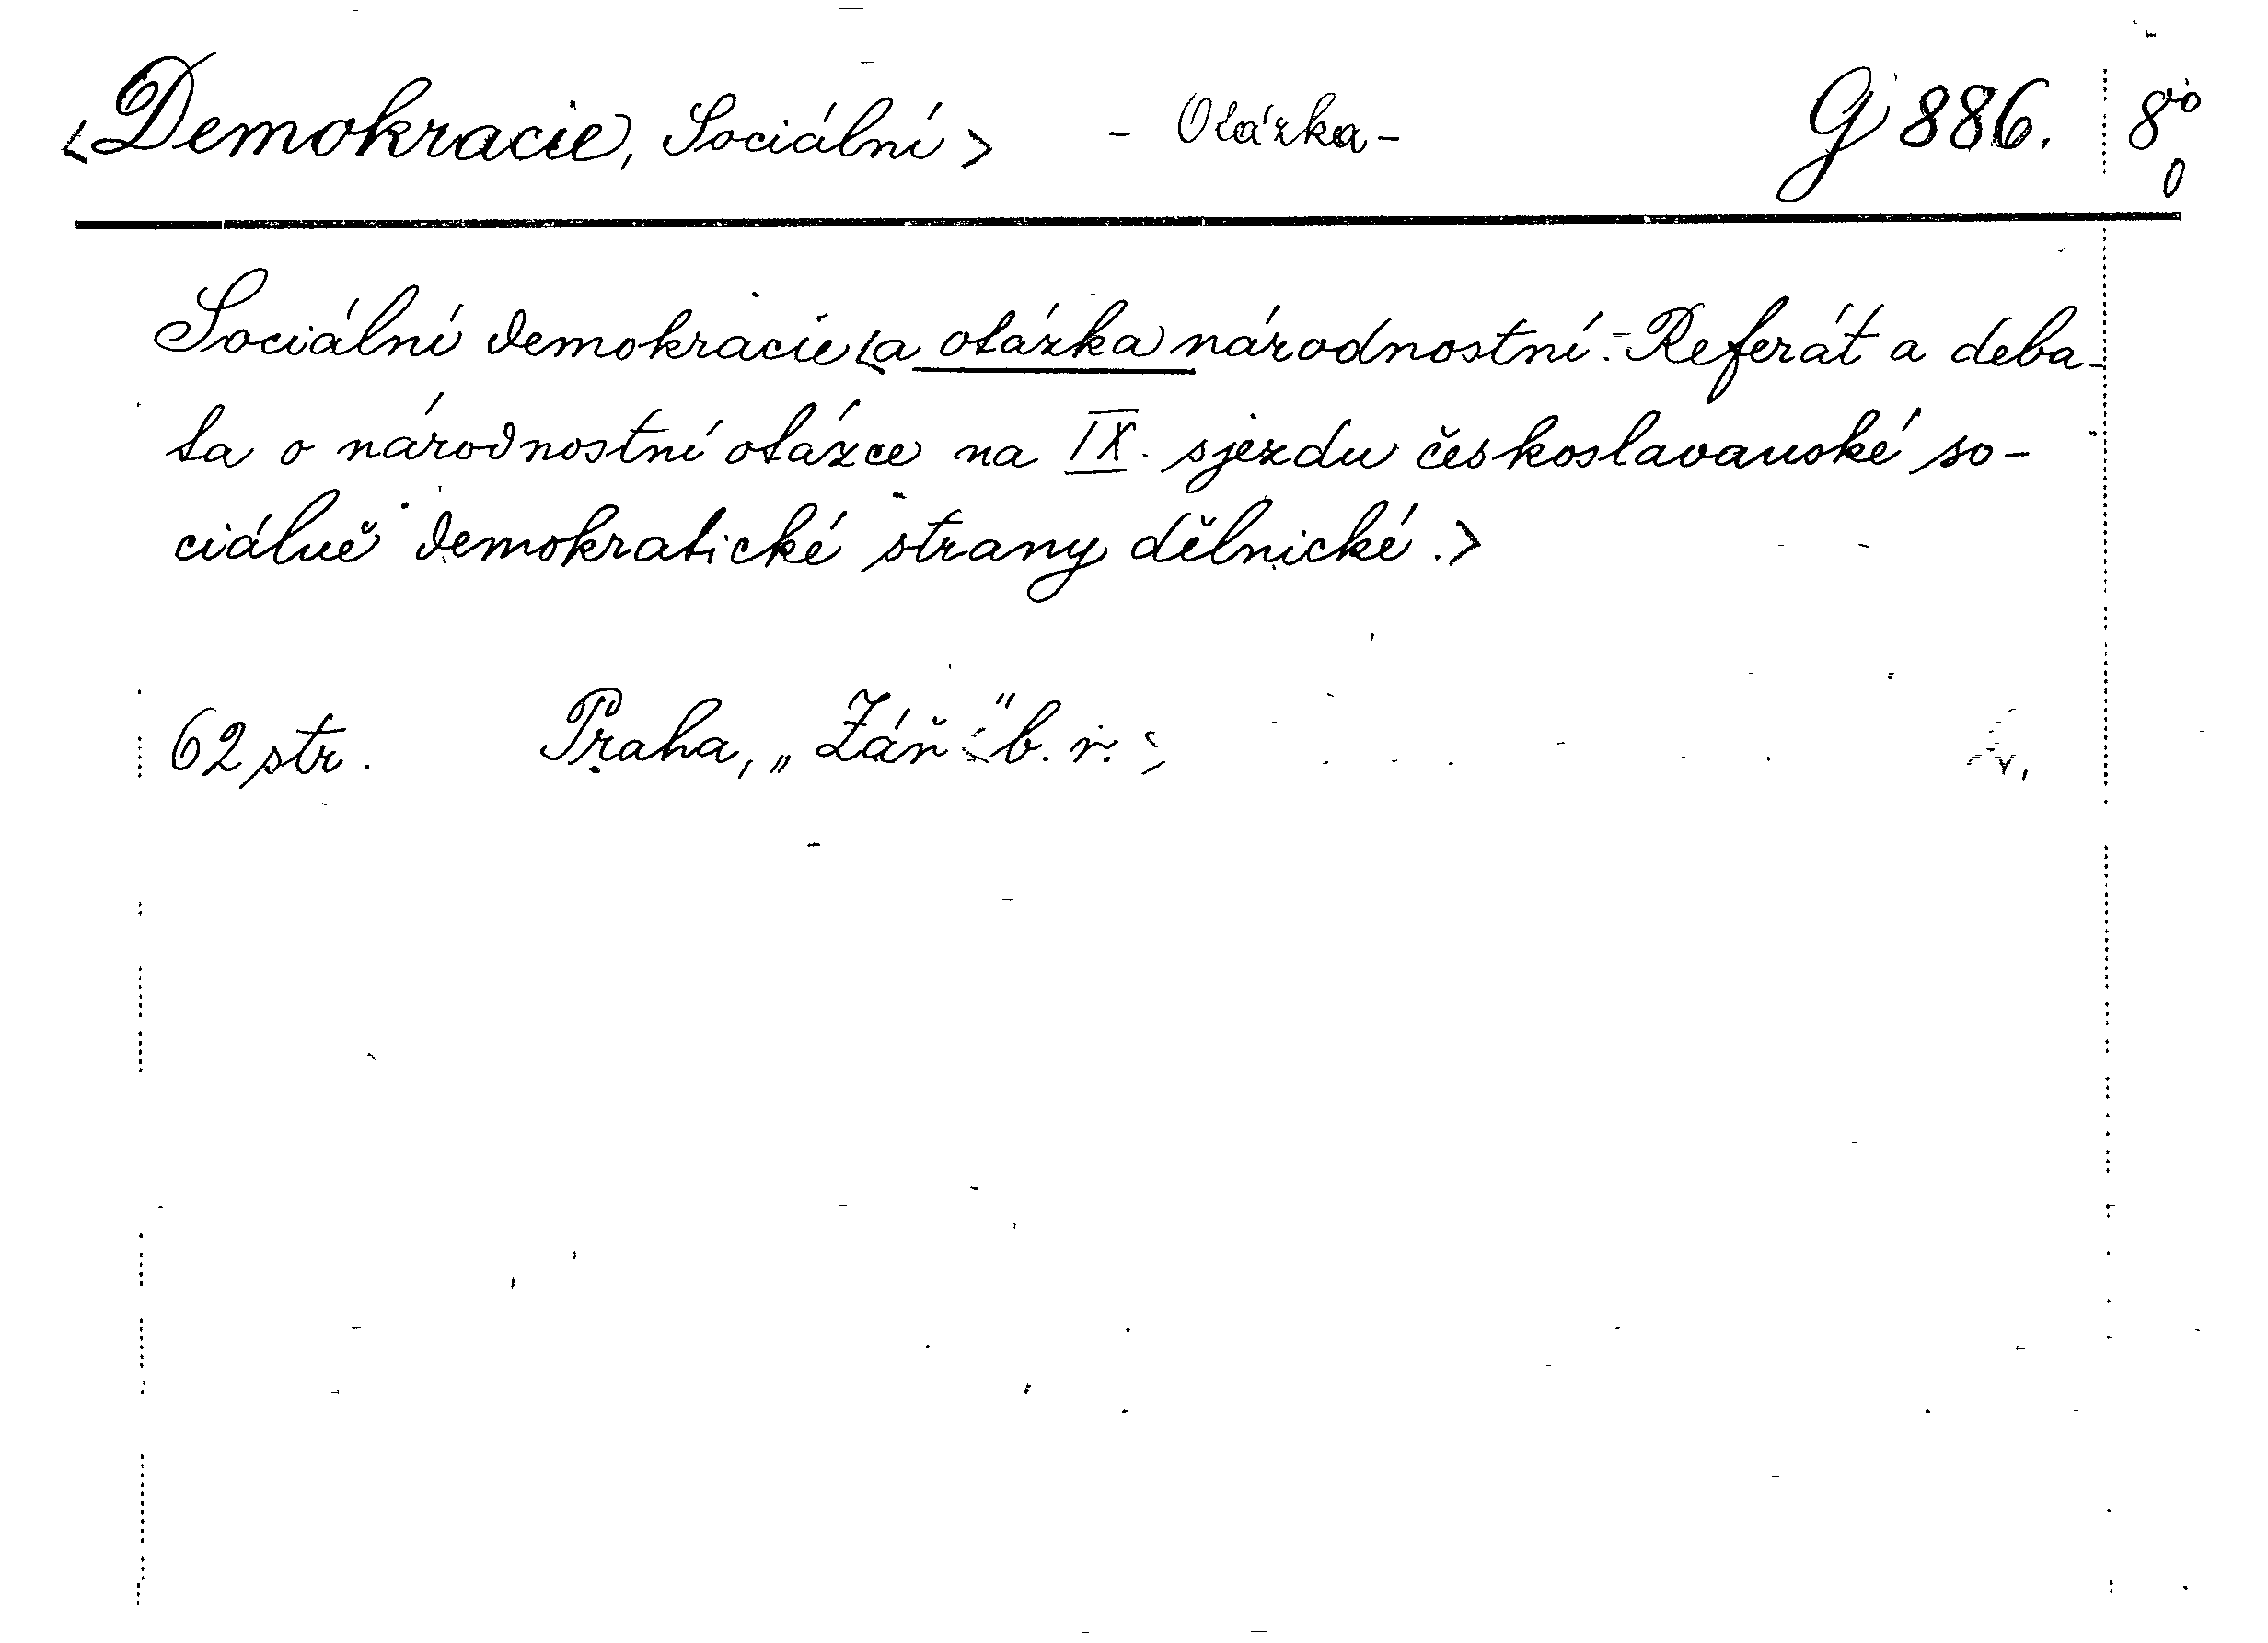 <Demokracie, Sociální> - Otázka - G 886. 8°
0
Sociální demokracie <a otázka národnostní.- Referát a deba-
ta o národnostní otázce na IX. sjezdu českoslavanské so-
ciálně demokratické strany dělnické.>
62 str. Praha, „Zář“ b. r.